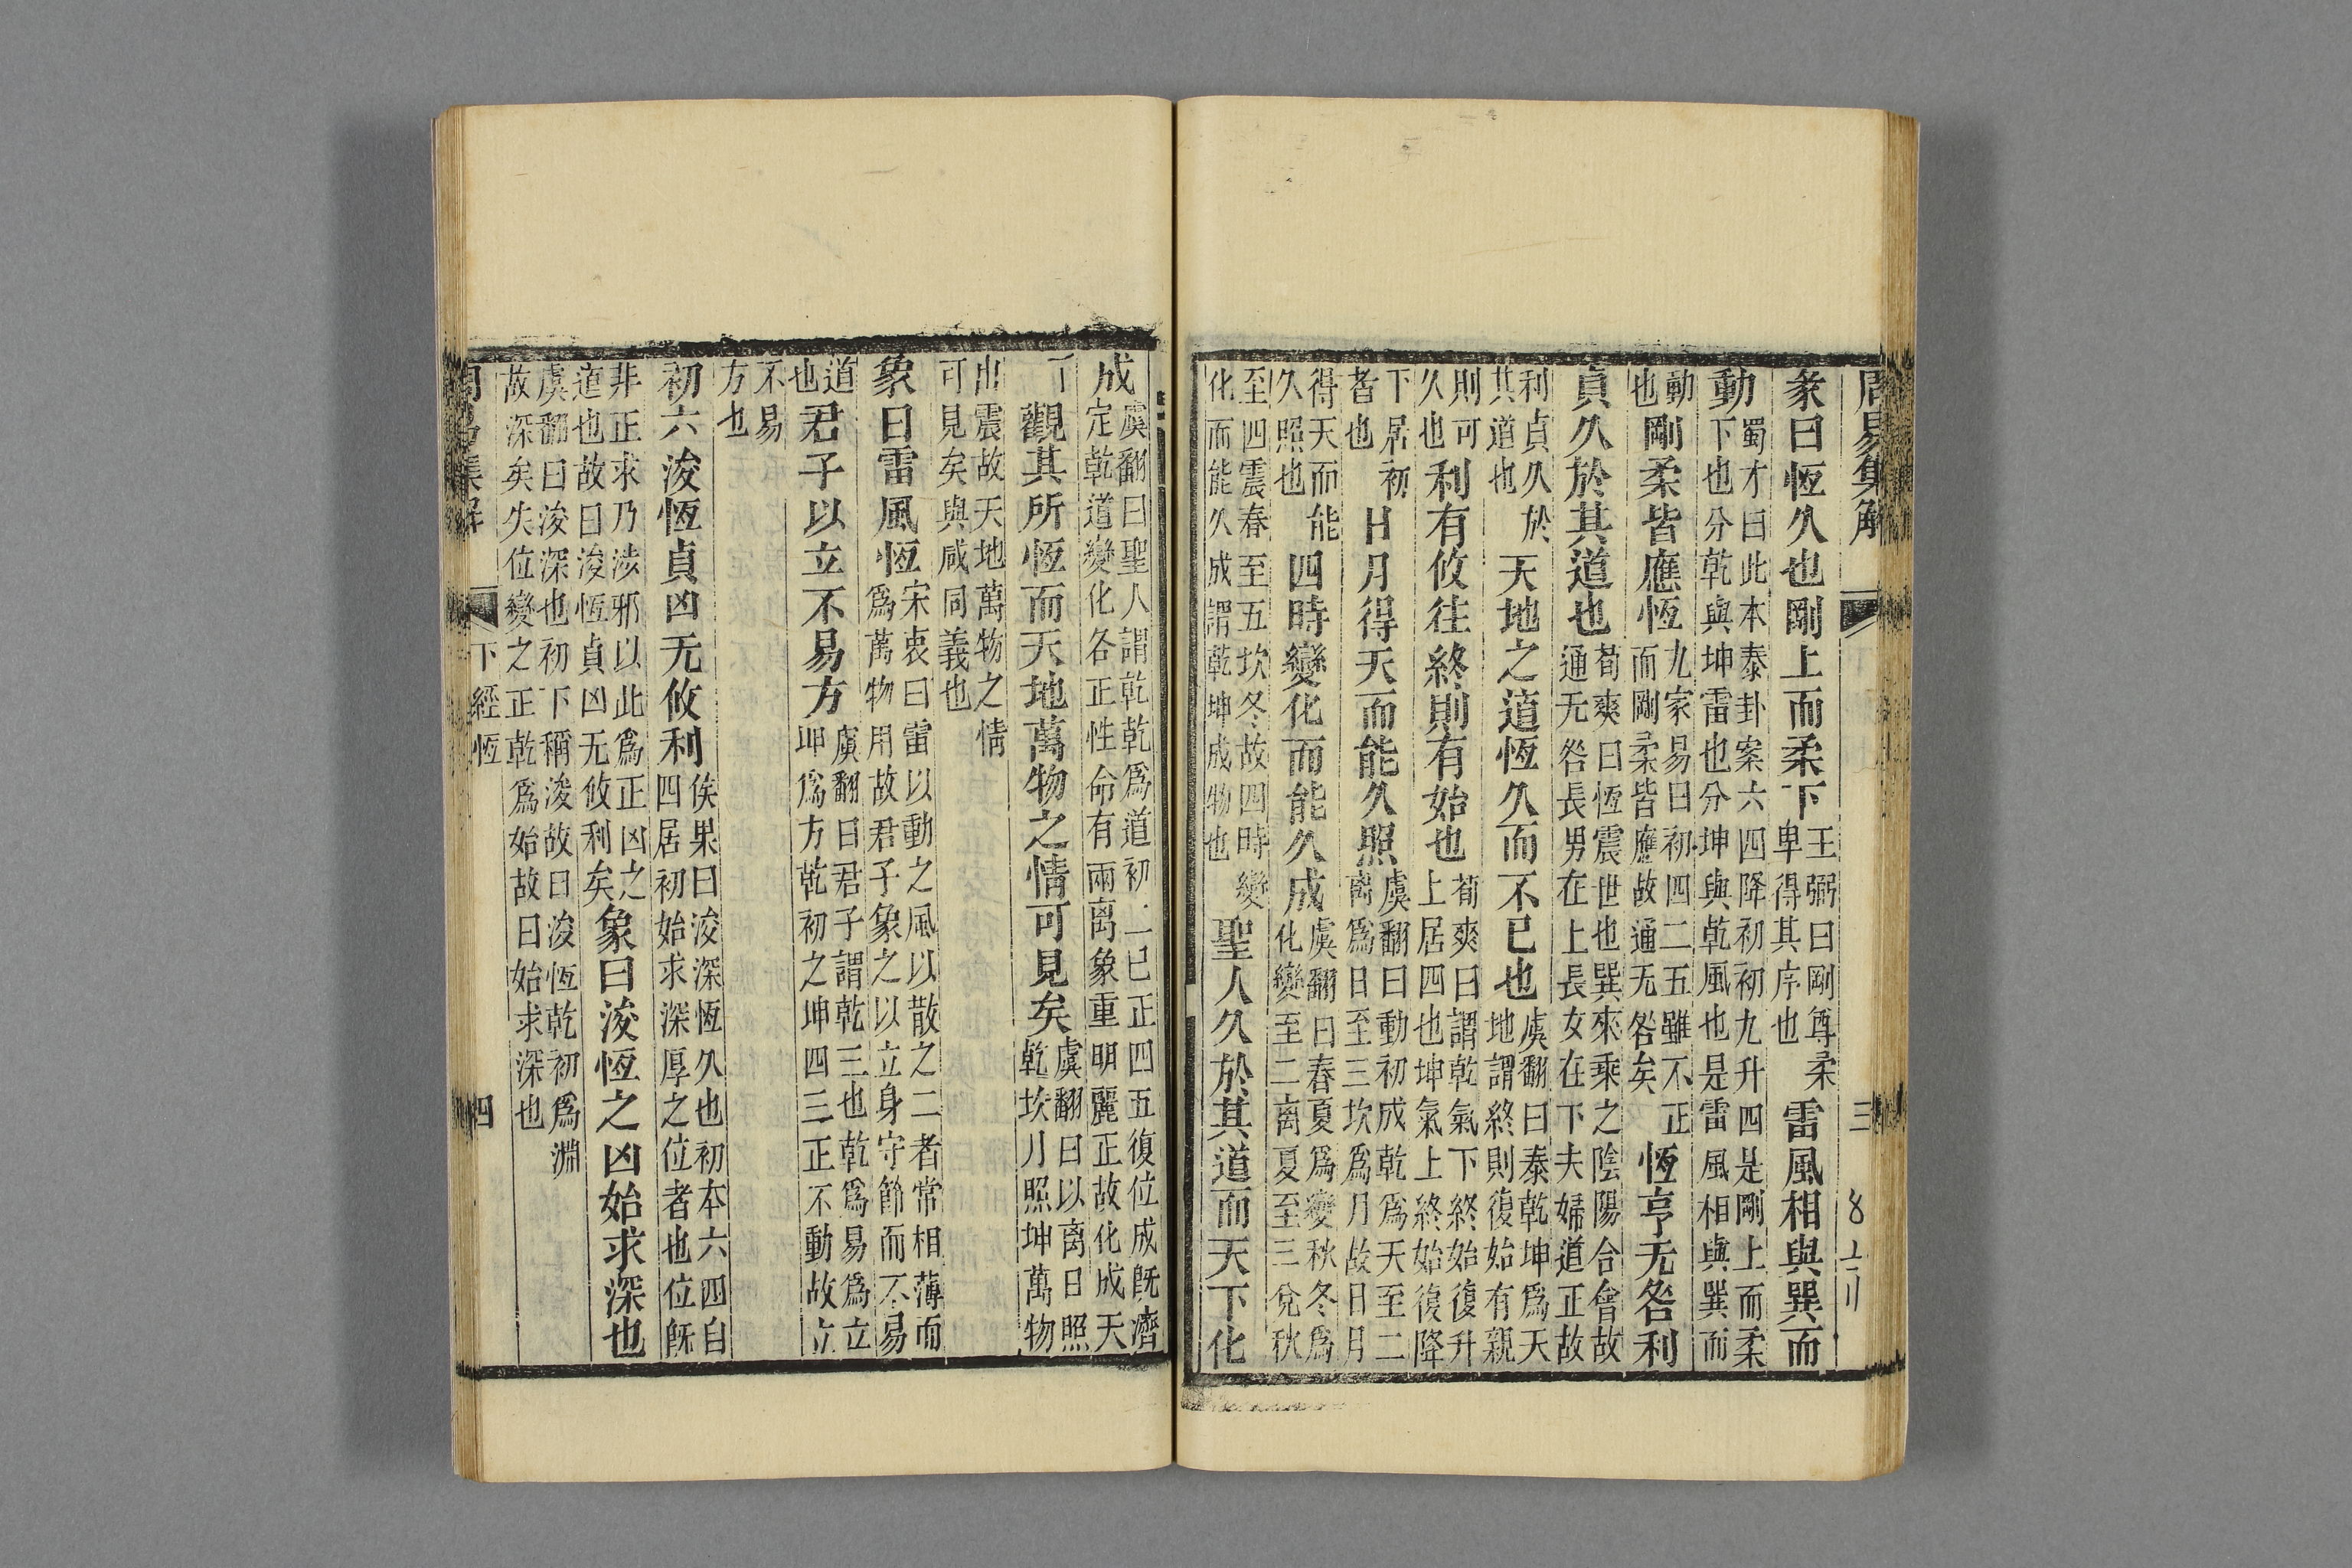 周易集解 三
彖曰恆久也剛上而柔下王弼曰剛尊柔卑得其序也雷風相與巽而
動蜀才曰此本泰卦案六四降初初九升四是剛上而柔下也分乾與坤雷也分坤與乾風也是雷風相與巽而
動也剛柔皆應恆九家易曰初四二五雖不正而剛柔皆應故通无咎矣恆亨无咎利
貞久於其道也荀爽曰恆震世也巽來乘之陰陽合會故通无咎長男在上長女在下夫婦道正故
利貞久於其道也天地之道恆久而不已也虞翻曰泰乾坤爲天地謂終則復始有親
則可久也利有攸往終則有始也荀爽曰謂乾氣下終始復升上居四也坤氣上終始復降
下居初者也日月得天而能久照虞翻曰動初成乾爲天至二离爲日至三坎爲月故日月
得天而能久照也四時變化而能久成虞翻曰春夏爲變秋冬爲化變至二离夏至三兌秋
至四震春至五坎冬故四時變化而能久成謂乾坤成物也聖人久於其道而天下化
成虞翻曰聖人謂乾乾爲道初二已正四五復位成旣濟定乾道變化各正性命有兩离象重明麗正故化成天
觀其所恆而天地萬物之情可見矣虞翻曰以离日照乾坎月照坤萬物
出震故天地萬物之情可見矣與咸同義也
象曰雷風恆宋衷曰雷以動之風以散之二者常相薄而爲萬物用故君子象之以立身守節而不易
道也君子以立不易方虞翻曰君子謂乾三也乾爲易爲立坤爲方乾初之坤四三正不動故立
不易方也
初六浚恆貞凶无攸利侯果曰浚深恆久也初本六四自四居初始求深厚之位者也位旣
非正求乃涉邪以此爲正凶之道也故曰浚恆貞凶无攸利矣象曰浚恆之凶始求深也
虞翻曰浚深也初下稱浚故曰浚恆乾初爲淵故深矣失位變之正乾爲始故曰始求深也
周易集解 下經 恆 四